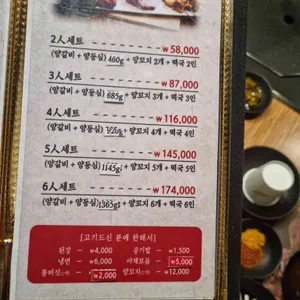 2人세트 ₩ 58,000
(양갈비 + 양등심) 460g + 양꼬치 2개 + 떡국 2인
3人세트 ₩ 87,000
(양갈비 + 양등심) 685g + 양꼬치 3개 + 떡국 3인
4人세트 ₩ 116,000
(양갈비 + 양등심) + 양꼬치 4개 + 떡국 4인
5人세트 ₩ 145,000
(양갈비 + 양등심) 1145g + 양꼬치 5개 + 떡국 5인
6人세트 ₩ 174,000
(양갈비 + 양등심) 1365g + 양꼬치 6개 + 떡국 6인
[고기드신 분에 한해서]
된장 ₩4,000 공기밥 ₩1,500
냉면 ₩6,000 야채모듬 ₩5,000
통버섯 ₩2,000 양꼬치 ₩12,000